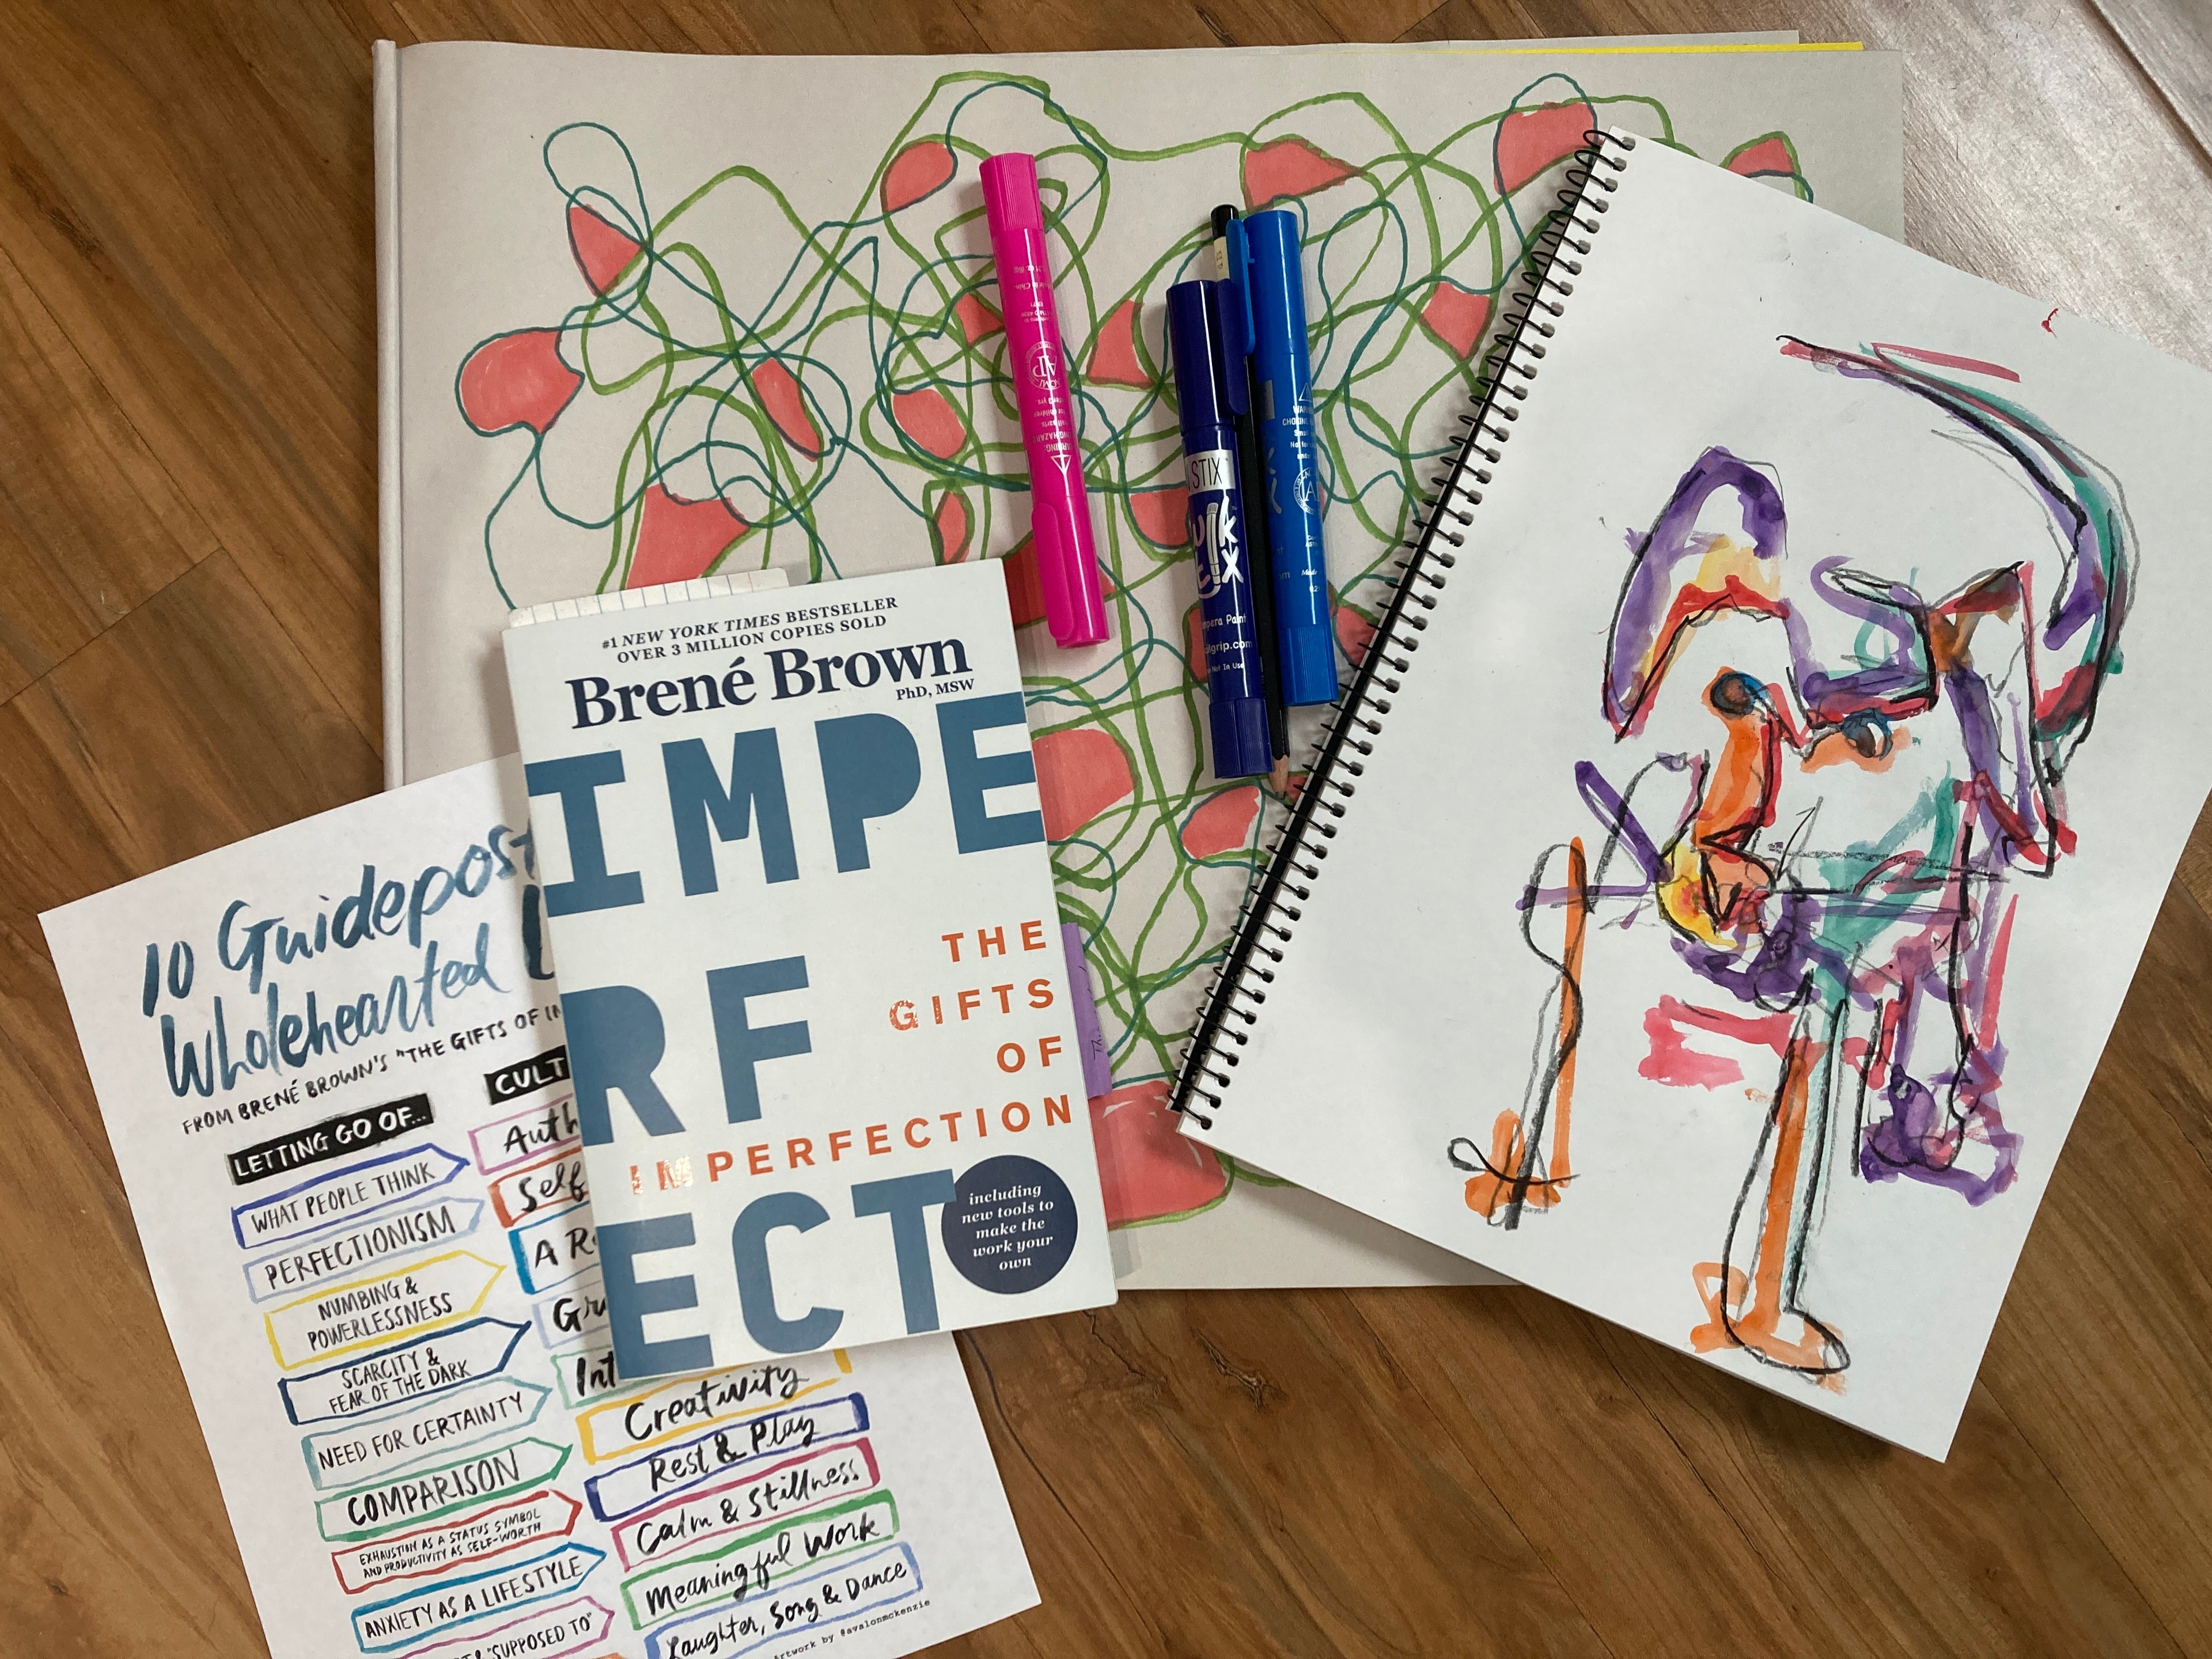 #1 NEW YORK TIMES BESTSELLER
OVER 3 MILLION COPIES SOLD
Brené Brown
PhD, MSW
IMPE
RF
ECT
THE
GIFTS
OF
IMPERFECTION
including
new tools to
make the
work your
own
10 Guidepost
Wholehearted L
FROM BRENÉ BROWN'S "THE GIFTS OF IM
LETTING GO OF...
WHAT PEOPLE THINK
PERFECTIONISM
NUMBING &
POWERLESSNESS
SCARCITY &
FEAR OF THE DARK
NEED FOR CERTAINTY
COMPARISON
EXHAUSTION AS A STATUS SYMBOL
AND PRODUCTIVITY AS SELF-WORTH
ANXIETY AS A LIFESTYLE
& "SUPPOSED TO"
CULT
Auth
Self
A Re
Gr
Int
Creativity
Rest & Play
Calm & Stillness
Meaningful Work
Laughter, Song & Dance
rtwork by @avalonmckenzie
STIX
Tempera Paint